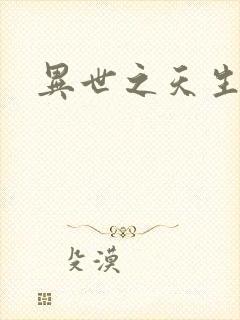 異世之天生
殳漠